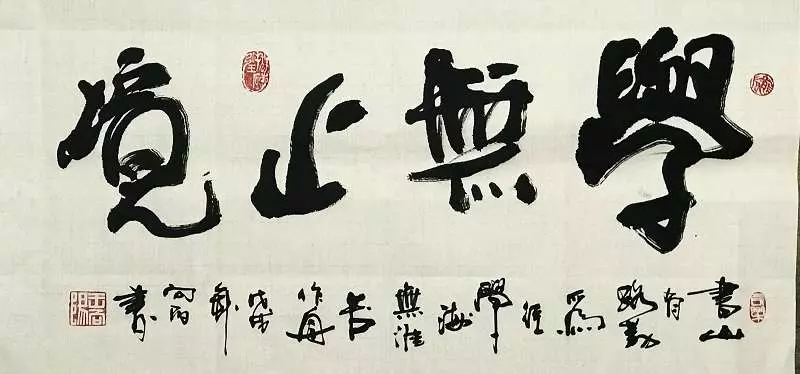 學無止境
書山有路勤為徑學海無涯苦作舟戊戌書